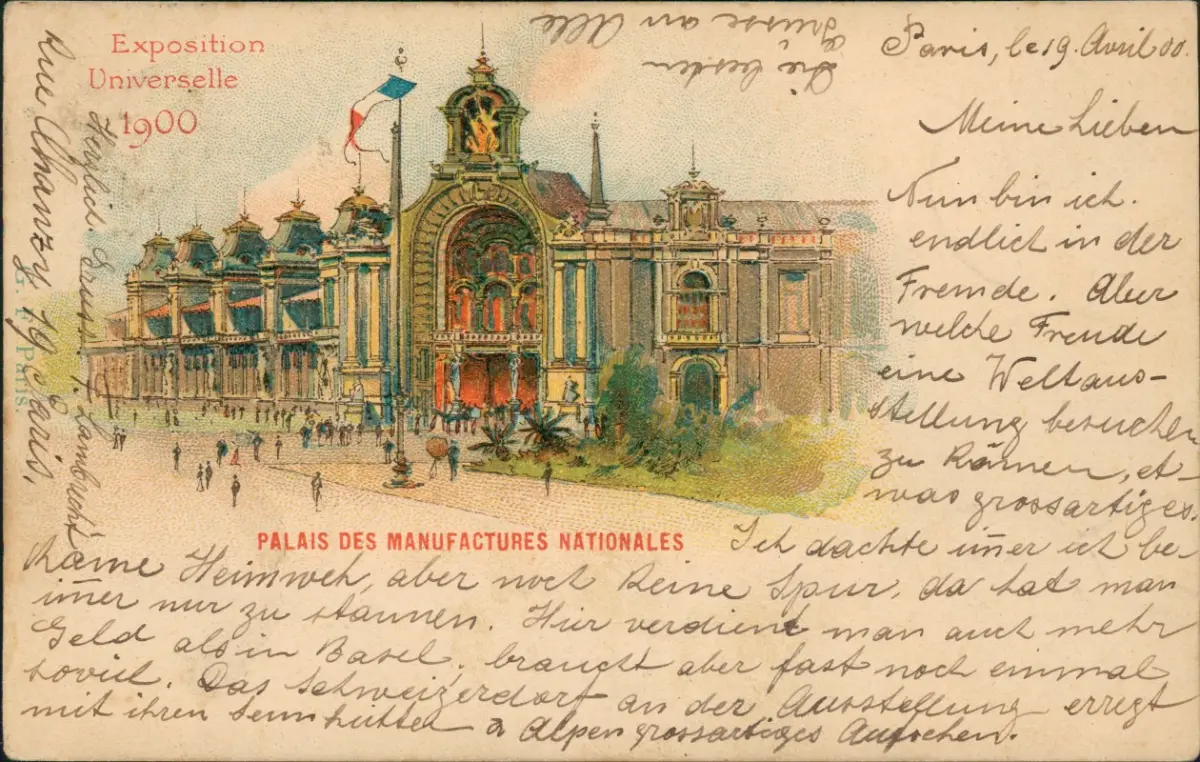 Exposition
Universelle
1900
Paris, le 19. Avril 00.
Meine Lieben
Nun bin ich.
endlich in der
Fremde. Aber
welche Freude
eine Weltaus-
stellung besuchen
zu können, et-
was grossartiges.
PALAIS DES MANUFACTURES NATIONALES
Ich dachte im̄er ich be-
käme Heimweh, aber noch keine Spur, da hat man
im̄er nur zu staunen. Hier verdient man auch mehr
Geld als in Basel, braucht aber fast noch einmal
soviel. Das Schweizerdorf an der Ausstellung erregt
mit ihren Sennhütten & Alpen grossartiges Aufsehen.
Die besten
Grüsse an Alle
Herzlich. Gruss. Lambrecht
Rue Amanzy 19 Paris.
Paris.